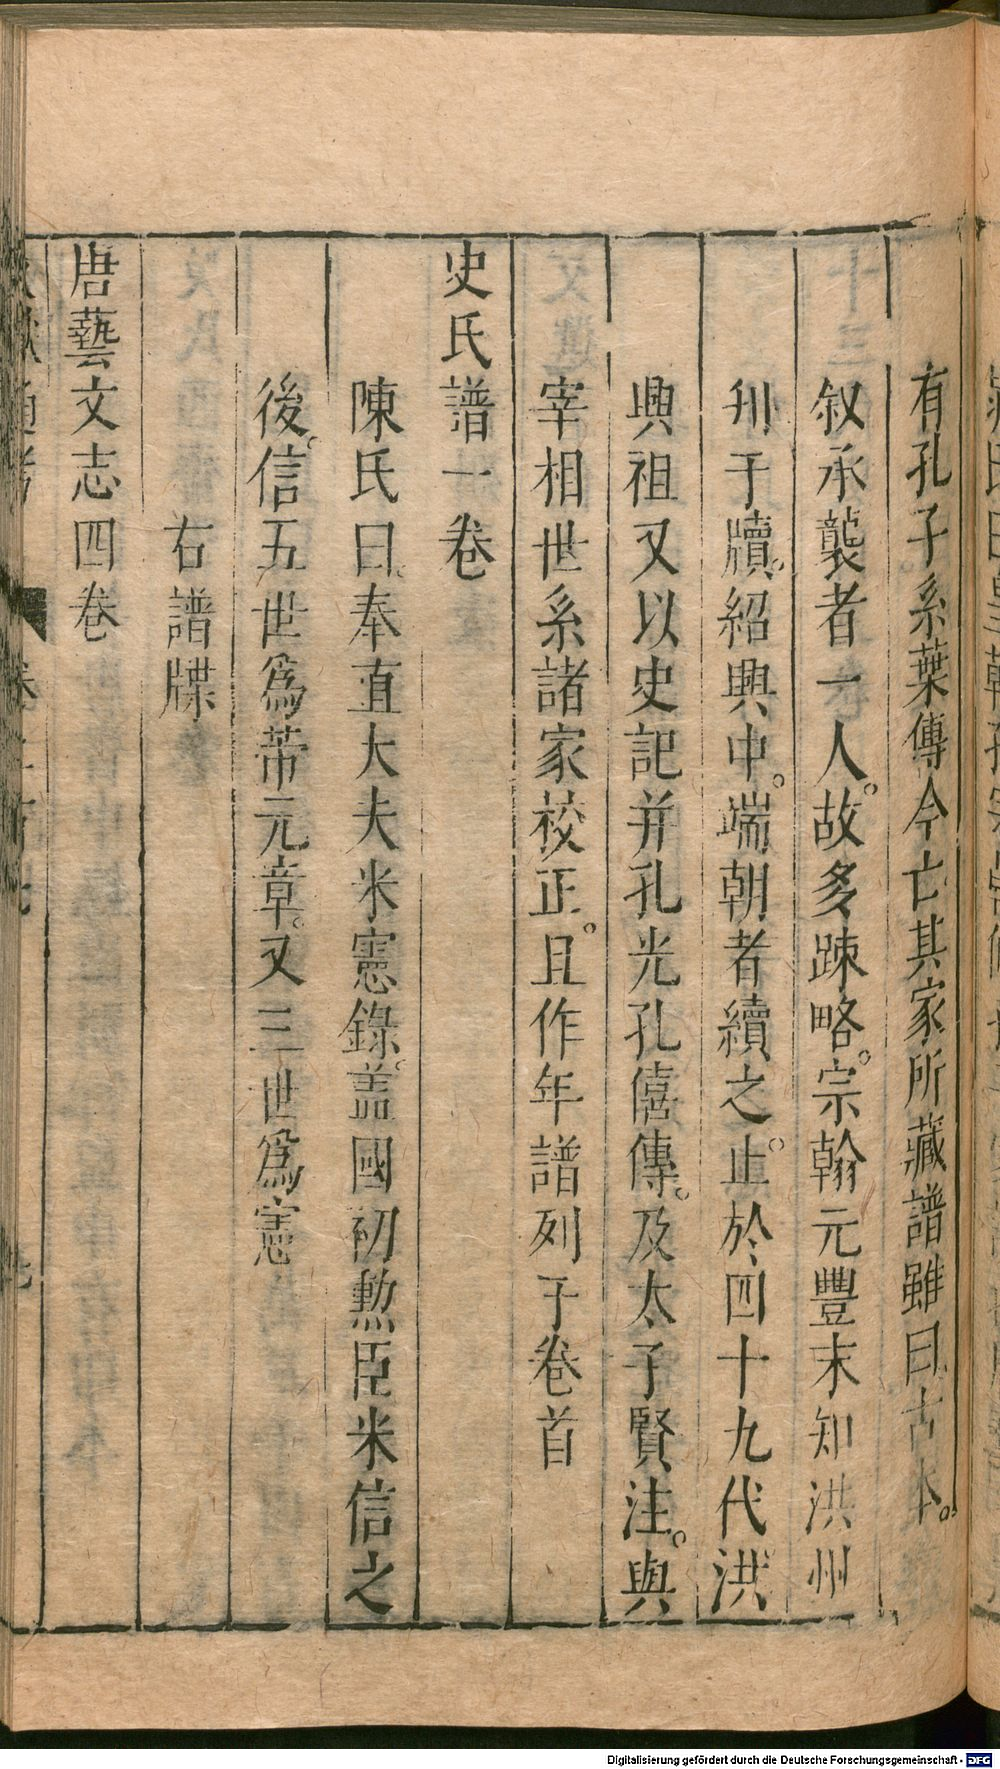 有孔子系葉傳今亡其家所藏譜雖曰古本。
叙承襲者一人。故多踈略。宗翰元豐末知洪州
刋于牘。紹興中。端朝者續之。止於四十九代。洪
興祖又以史記并孔光孔僖傳。及太子賢注。與
宰相世系諸家校正。且作年譜列于卷首
史氏譜一卷
陳氏曰。奉直大夫米憲錄。盖國初勲臣米信之
後。信五世爲芾元章。又三世爲憲
右譜牒
唐藝文志四卷
Digitalisierung gefördert durch die Deutsche Forschungsgemeinschaft - DFG